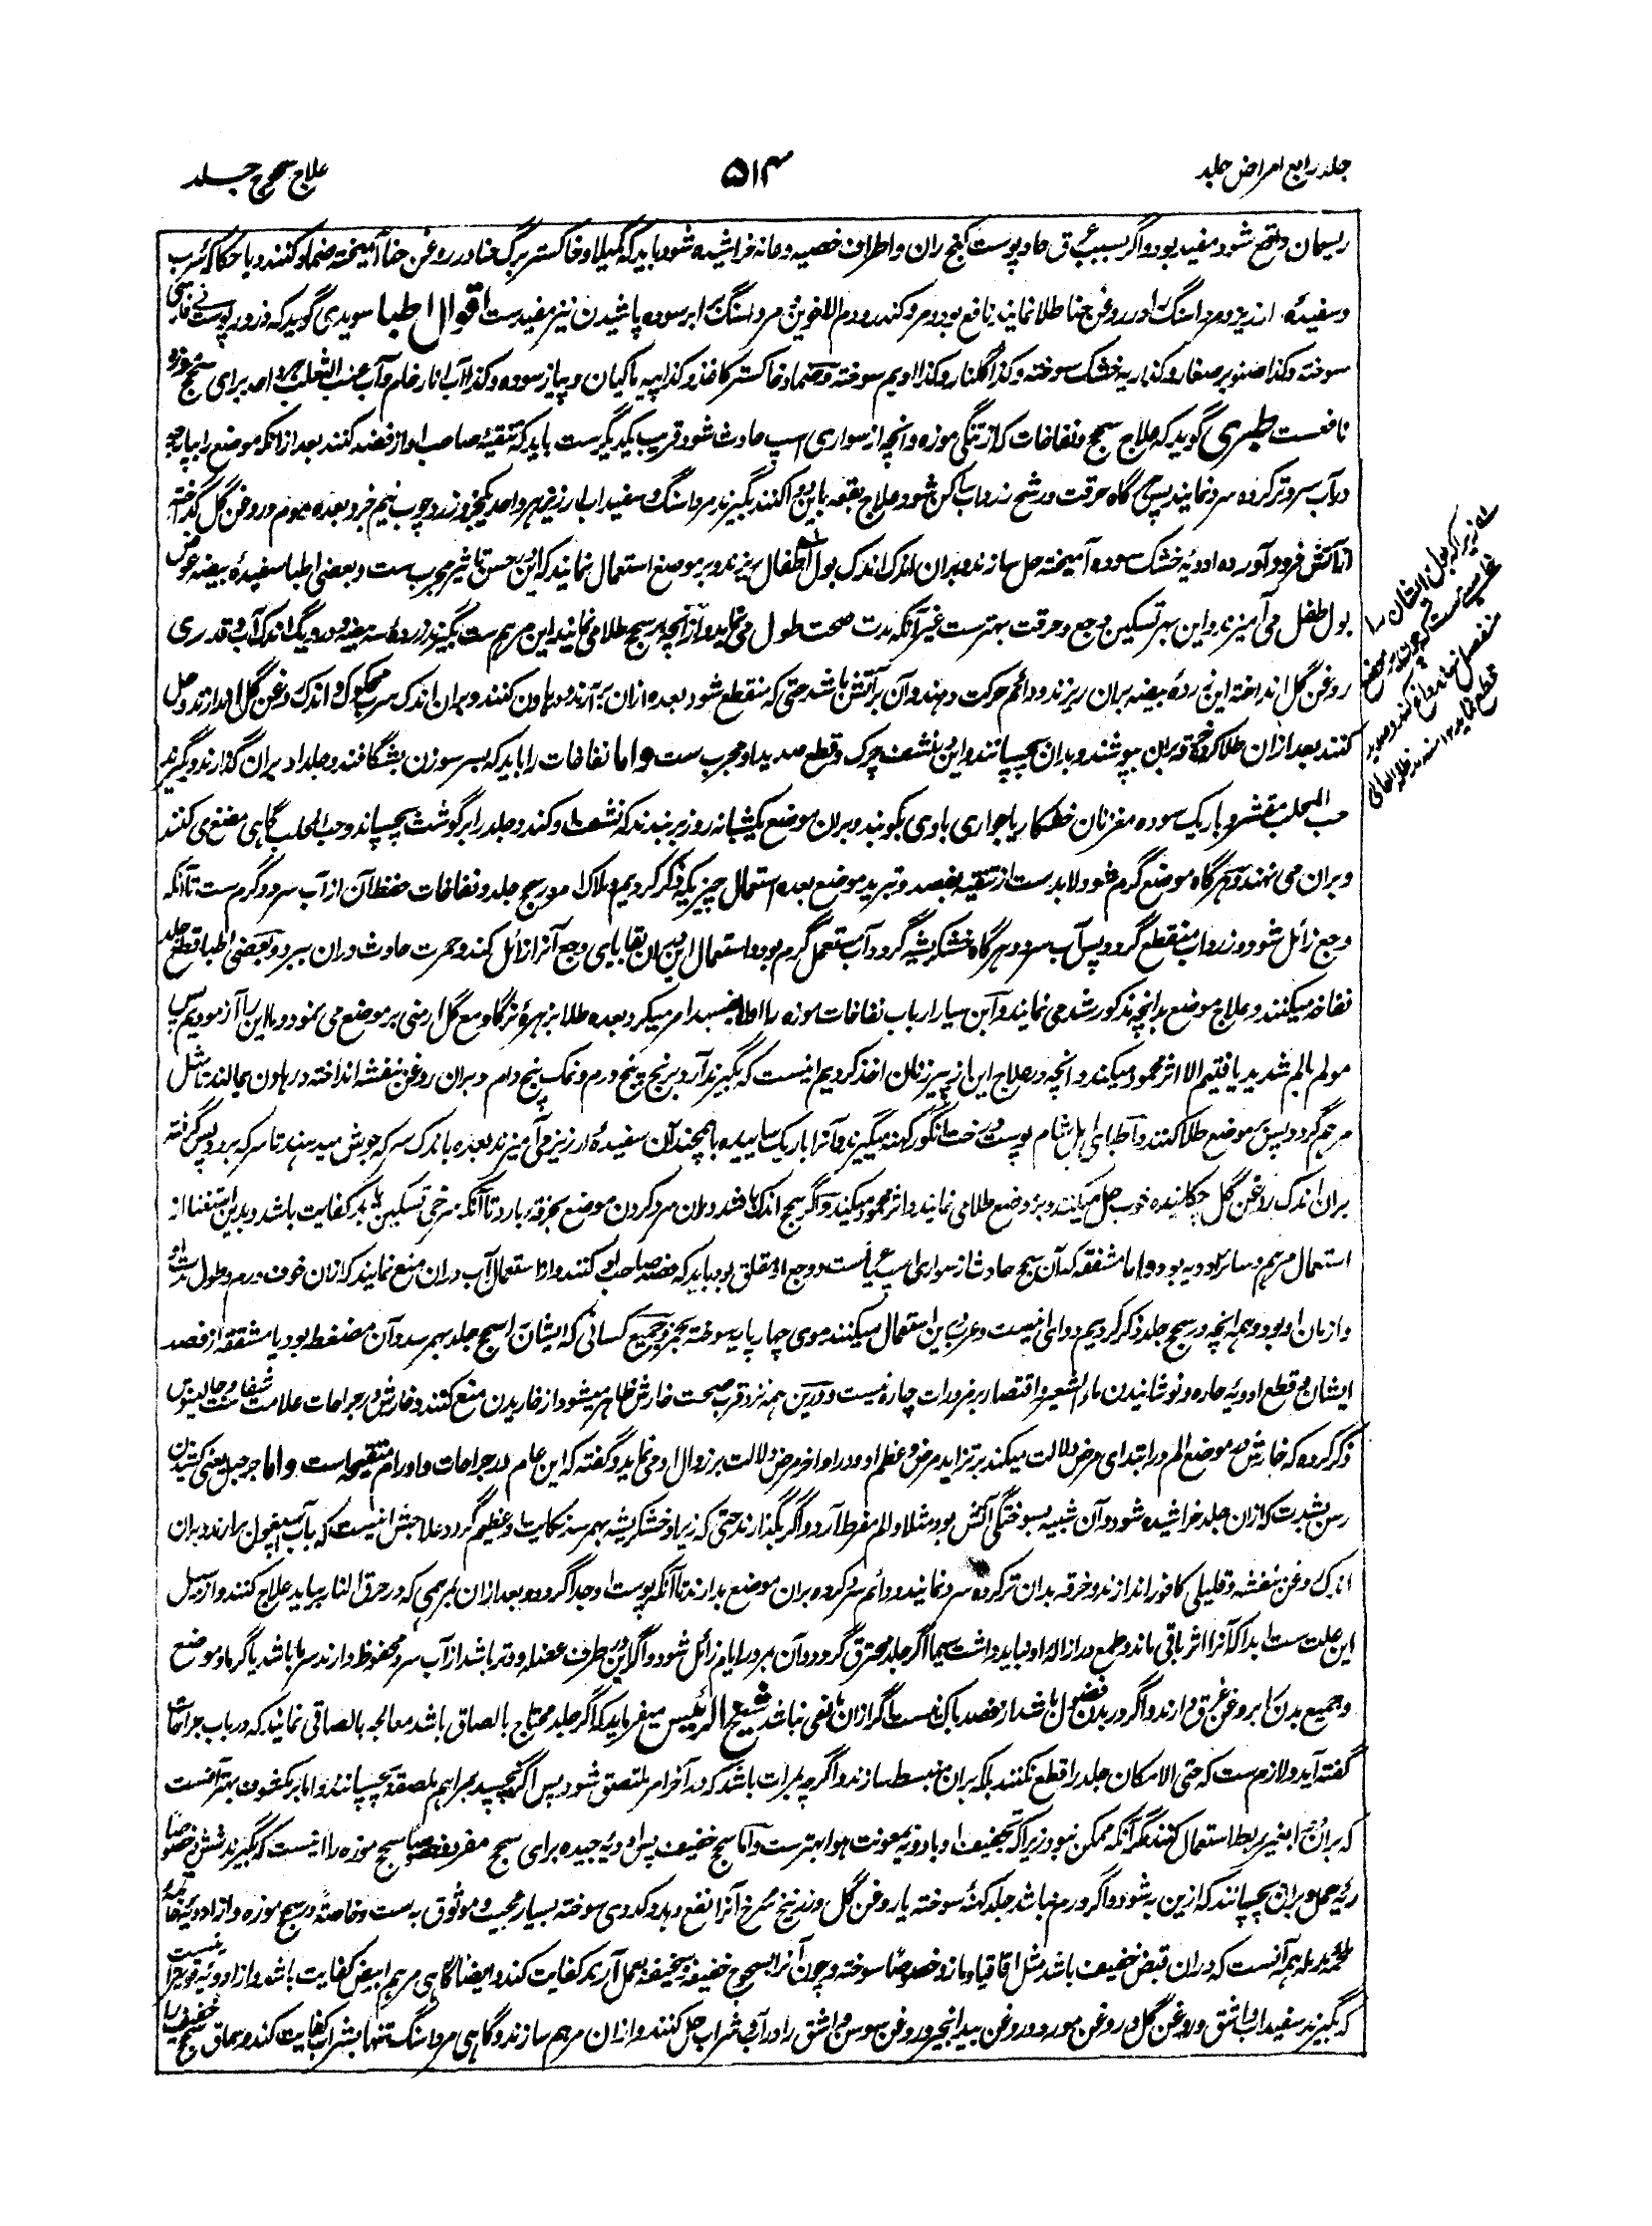 جلد رابع امراض جلد
۵۱۴
علاج سحج جلد
ریسمان و متقرح شود مفید بود و اگر بسبب عرق حاد پوست کنج ران و اطراف خصیه و عانه خراشیده شود باید که کمیلا و خاکستر برگ حنا در روغن حنا آمیخته ضماد کنند و یا حکاکهٔ سرب
و سفیدهٔ ارزیز و مرداسنگ در روغن حنا طلا نمایند نافع بود و مر و کندر و دم الاخوین مرداسنگ برابر سوده پاشیدن نیز مفید ست اقوال اطبا سویدی گوید که ذرور پوست نی فارسی
سوخته و کذا صنوبر صغار و کذا ریه خشک سوخته و کذا گلنار و کذا ادیم سوخته و ضماد خاکستر کاغذ و کذا پیه ماکیان و پیاز سوده و کذا آب انار خام و آب عنب الثعلب هر واحد برای سحج موزه
نافعست طبری گوید که علاج سحج و نفاخات که از تنگی موزه و آنچه از سواری اسپ حادث شود قریب یکدیگرست باید که تنقیهٔ صاحب او از فصد کنند بعد از آنکه موضع را بپارچه
در آب سرد تر کرده سرد نمایند پس هرگاه حرقت و رشح زرداب ساکن شود علاج بقعه باین دوا کنند بگیرند مرداسنگ و سفیداب ارزیز هر واحد یکجزو زردچوب نیم جزو بعده موم در روغن گل گداخته
از آتش فرود آورده ادویهٔ خشک سوده آمیخته حل سازند و بران اندک اندک بول اطفال ریزند و بر موضع استعمال نمایند که این حسن تاثیر مجرب ست و بعضی اطبا سفیدهٔ بیضه عوض
بول طفل می آمیزند و این بهر تسکین وجع و حرقت بهترست غیر آنکه مدت صحت طول می نماید و از آنچه بر سحج طلا می نمایند این مرهم ست بگیرند زردهٔ سه بیضه و در دیگ اندک آب و قدری
روغن گل انداخته این زردهٔ بیضه بران ریزند و دائم حرکت دهند و آن بر آتش باشد حتی که منقطع شود بعده ازان برآرند و در هاون کنند و بران اندک سرب محکوک و اندک روغن گل اندازند و حل
کنند بعد ازان طلا کرده خرقه بران بپوشند و بران بچسپانند و این بنشف چرک و قطع صدید او مجرب ست و اما نفاخات را باید که بسر سوزن بشگافند و جلد او بران گذارند و بگیرند
حب المحلب مقشر و باریک سوده مغز نان خشکار یا جواری باوی بکوبند و بران موضع یکشبانه روز بربندند که نشف او کند و جلد را بر گوشت بچسپاند و حب المحلب گاهی مضغ می کنند
و بران می نهند و هرگاه موضع گرم شود لابدست از تنقیه بفصد و تبرید موضع بعده استعمال چیزیکه ذکر کردیم و ملاک امور سحج جلد و نفاخات حفظ آن از آب سرد و گرم ست تا آنکه
وجع زائل شود و زرداب منقطع گردد پس آب سرد و هرگاه خشکریشه گردد آب مستعمل گرم بود و استعمال این بران بقایای وجع آنرا زائل کند و حمرت حادث دران ببرد و بعضی اطبا قطع جلد
نفاخه میکنند و علاج موضع بدانچه مذکور شد می نمایند و ابن سیار ارباب نفاخات موزه را اطلا بصبر امر میکرد بعده طلا بزهرهٔ نرگاو مع گل ارمنی بر موضع می نمود و ما این را آزمودیم پس
مولم بالم شدید یافتیم الا اثر محمود میکند و آنچه در علاج این از پیرزنان اخذ کردیم اینست که بگیرند آرد برنج پنج درم و نمک پنج درم و بران روغن بنفشه انداخته در هاون بمالند تا مثل
مرهم گردد پس بر موضع طلا کنند و اطبای اهل شام پوست درخت انگور کهنه میگیرند و آنرا باریک ساییده با همچند آن سفیدهٔ ارزیز می آمیزند بعده باندک سرکه جوش میدهند تا سرکه برود پس گرفته
بران اندک روغن گل چکانیده خوب حل میکنند و بر موضع طلا می نمایند و اثر محمود میکند و اگر سحج اندک باشد دران سرد کردن موضع بخرقه بارد تا آنکه سرخی تسکین یابد کفایت باشد و بدین استغنا از
استعمال مرهم و سائر ادویه بود و اما مشققه که آن سحج حادث از سواری اسپ عریانست و وجع او مقلق بود باید که فصد صاحب او کنند و از استعمال آب دران منع نمایند که ازان خوف ورم و طول مدت او
و ازمان او بود و همه آنچه در سحج جلد ذکر کردیم دوای اینست و عرب این استعمال میکنند موی چهارپایه سوخته بخمر و جمیع کسانی که ایشان را سحج جلد بهم رسد و آن مضغط بود یا مشققه از فصد
ایشان مع قطع ادویهٔ حاده و نوشانیدن ماء الشعیر و اقتصار بر مزورات چاره نیست و درین همه نزد قرب صحت خارش ظاهر میشود از خاریدن منع کنند و خارش در جراحات علامت شفا ست و جالینوس
ذکر کرده که خارش در موضع الم در ابتدای مرض دلالت میکند بر تزاید مرض و عظم او و در اواخر مرض دلالت بر زوال او می نماید و گفته که این عام در جراحات و اورام متقیحه است و اما جر حبل یعنی کشیدن
رسن بشدت که ازان جلد خراشیده شود و آن شبیه بسوختگی آتش بود مثلا و الم مفرط آرد و اگر بگذارند حتی که زیر او خشکریشه بهم رسد نکایت او عظیم گردد علاجش اینست که بآب اسپغول برارند و بران
اندک روغن بنفشه و قلیلی کافور اندازند و خرقه بدان تر کرده سرد نمایند و دائم سرد کرده بران موضع بدارند تا آنکه پوست او جدا گردد و بعد ازان بمرهمی که در حرق النار بیاید علاج کنند و از سبیل
این علت ست ابدا که آنرا اثر باقی ماند و طمع در ازالهٔ او نباید داشت سیما اگر جلد محترق گردد و آن بمرور ایام زائل شود و اگر این در طرف عضله و وتر باشد از آب سرد محفوظ دارند سرما باشد یا گرما و موضع
و جمیع بدن را بروغن غرق دارند و اگر در بدن فضول باشد از فصد باک نیست مگر ازان مانعی نباشد شیخ الرئیس میفرماید که اگر جلد محتاج بالصاق باشد معالجه بالصاقی نمایند که در باب جراحات
گفته آید و لازم ست که حتی الامکان جلد را قطع نکنند بلکه بران منبسط سازند و اگرچه بمرات باشد که در آخر امر ملتصق شود پس اگر نچسپد بمراهم ملصقه بچسپانند و اما بر مکشوف بهتر آنست
که بران مرهم بغیر ربط استعمال کنند مگر آنکه ممکن نبود زیرا که تجفیف او بادویه بمعونت هوا بهترست و اما سحج خفیف پس ادویه جیده برای سحج مفرد خصوصا سحج موزه را اینست که بگیرند شش خصوصا
ریهٔ حمل و بران بچسپانند که ازین به شود و اگر ورم نباشد جلد کهنهٔ سوخته با روغن گل و زرنیخ سرخ آنرا نفع دهد و کدوی سوخته بسیار عجیب و موثوق به ست و خاصةً در سحج موزه و از ادویهٔ خاتمه
ملحمه مدمله بهم آنست که دران قبض خفیف باشد مثل اقاقیا و مازو خصوصًا سوخته و چون آنرا بسحج خفیف بعمل آرند کفایت کند و ایضا گاهی مرهم ابیض کفایت باشد و از ادویهٔ قویه اینست
که بگیرند سفیداب و اشق و روغن گل و روغن مورد و روغن بیدانجیر و روغن سوسن و اشق را در آب و شراب حل کنند و ازان مرهم سازند و گاهی مرداسنگ تنها بشراب کفایت کند و سماق سحج خفیف را